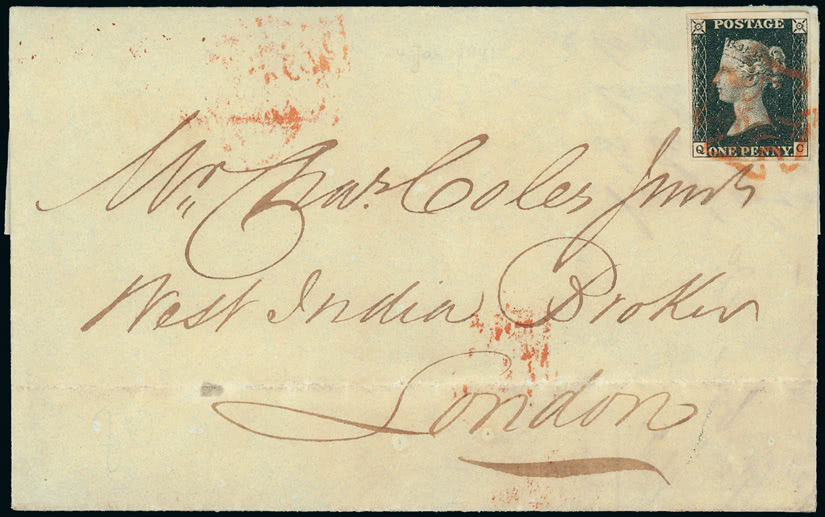 POSTAGE
Q ONE PENNY C
Mr. Chas. Coles Junr.
West India Broker
London